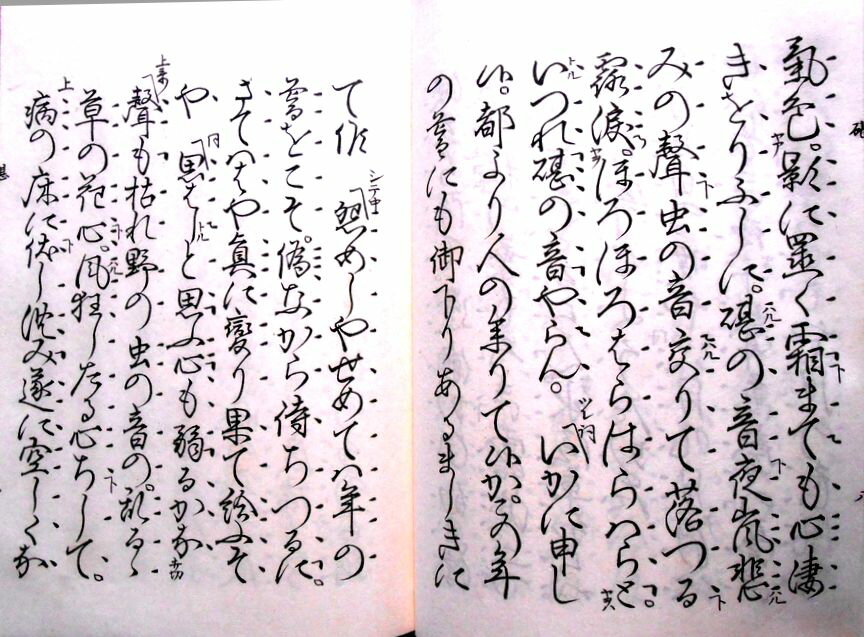 氣色。影に置く霜までも心凄
きをりふしに。砧の音夜嵐悲
みの聲虫の音。交りて落つる
露涙。ほろほろはらはらはらと。
いづれ砧の音やらん。いかに申し
候。都より人の參りて候が。この年
の暮にも御下りあるまじきに
て候 怨めしやせめては年の
暮をこそ。偽ながら待ちつるに。
さてははや眞に變り果て給ふぞ
や 思はじと思ふ心も弱るかな
聲も枯れ野の虫の音の。亂るゝ
草の花心。風狂じたる心ちして。
病の床に伏し沈み遂に空しくな